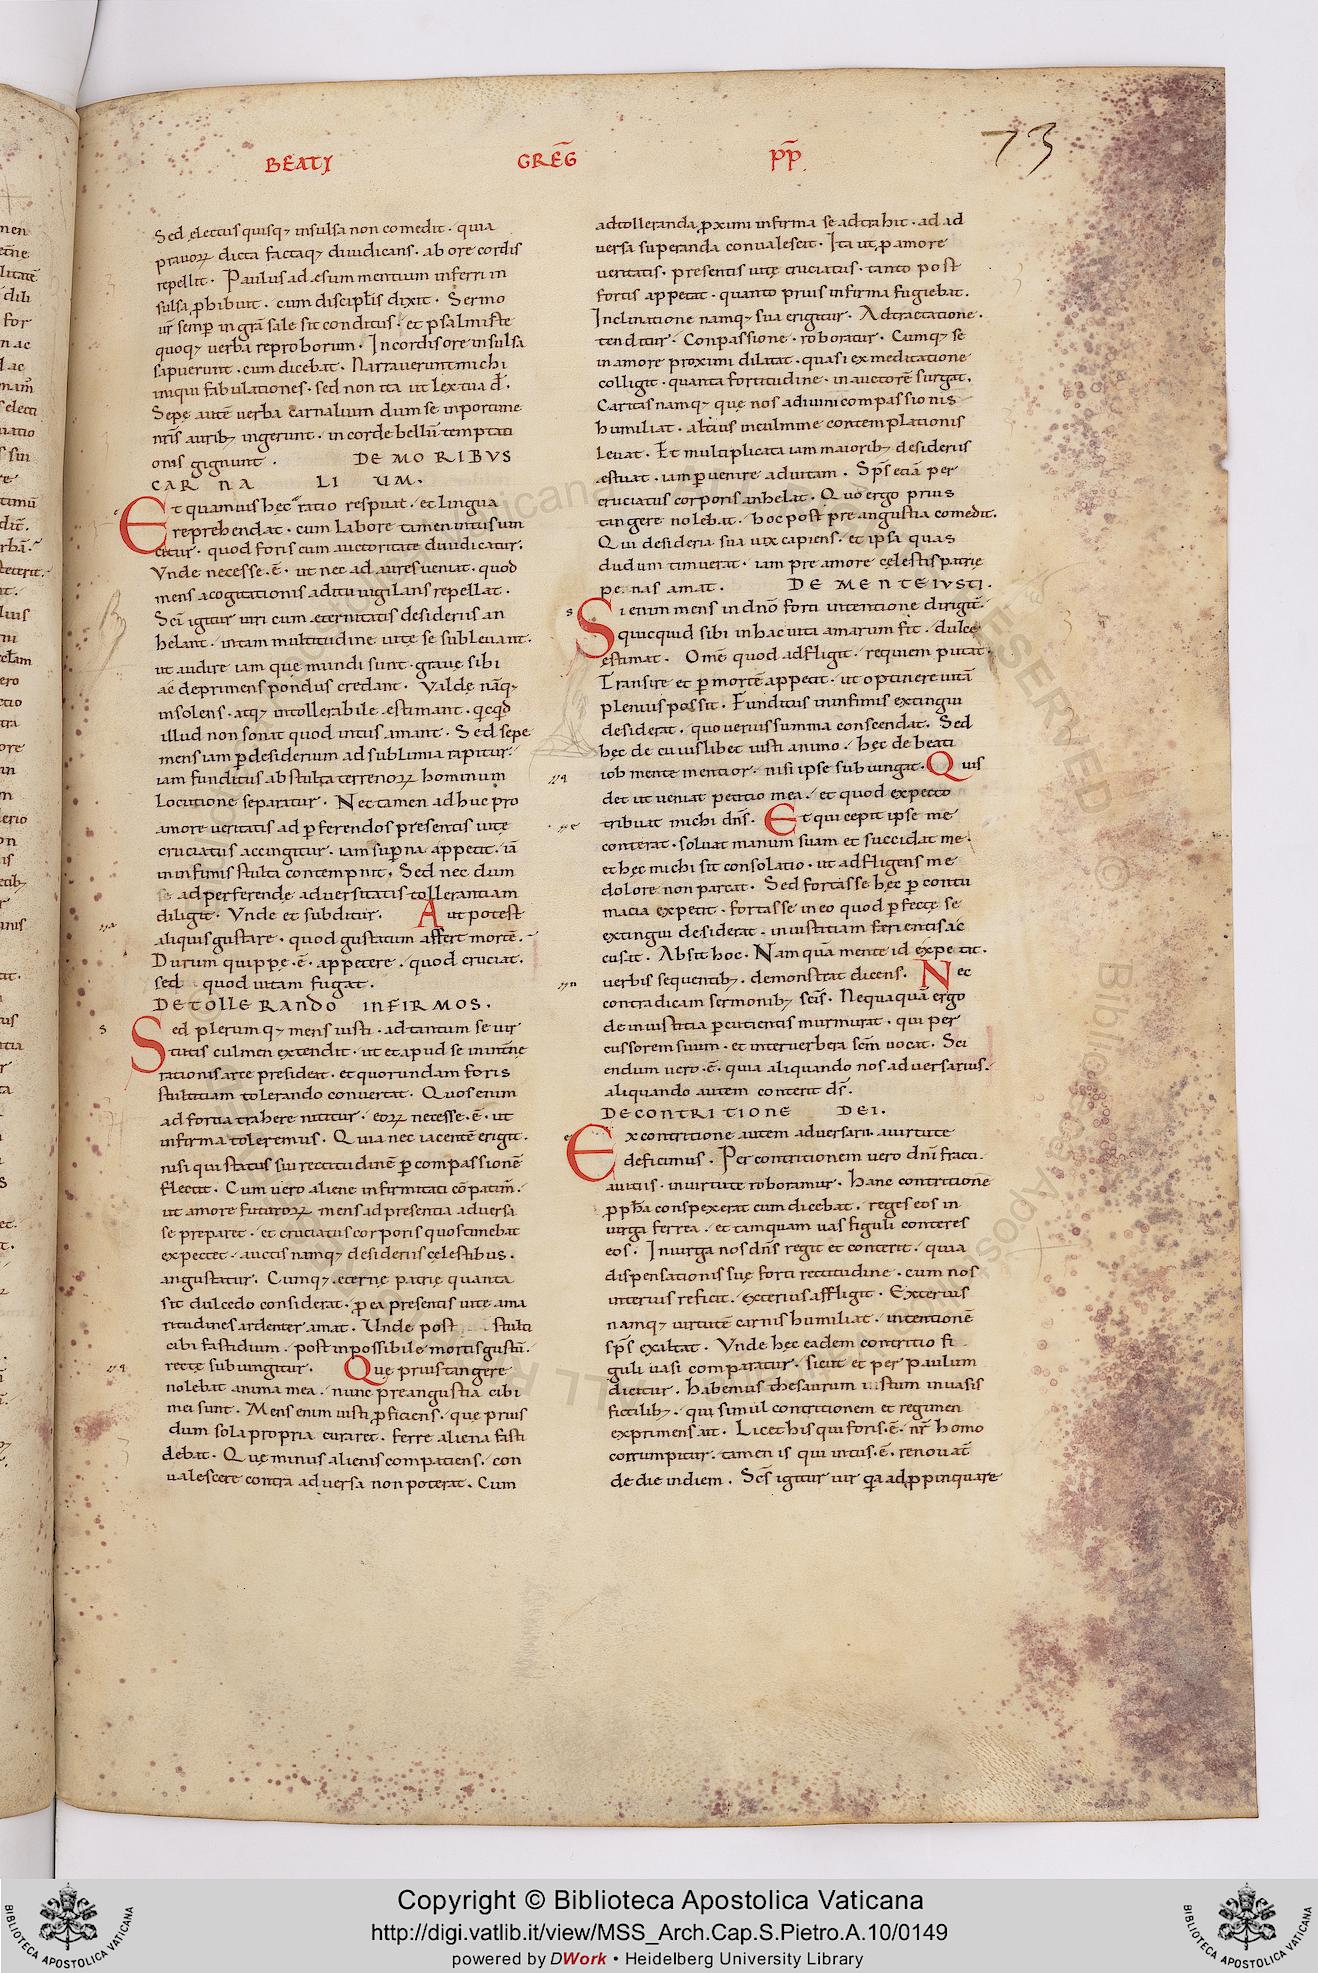 BEATI GREḠ P̄P̄.
73
Sed electus quisq; insulsa non comedit · quia
prauoꝝ dicta factaq; diiudicans · ab ore cordis
repellit · Paulus ad esum mentium inferri in
sulsa ꝓhibuit · cum discipƚis dixit · Sermo
ur̄ semꝑ in grā sale sit conditus · et psalmiste
quoq; uerba reproborum · In cordis ore insulsa
sapuerunt · cum dicebat · Narrauerunt michi
iniqui fabulationes · sed non ita ut lex tua d̄ .
Sepe autē uerba carnalium dum se inportune
nr̄is aurib; ingerunt · in corde bellū temptati
onis gignunt . DE MORIBVS
CARNALIUM .
Et quamuis hęc ratio respuat · et lingua
reprehendat · cum labore tamen intus uin
citur · quod foris cum auctoritate diiudicatur .
Vnde necesse · ē · ut nec ad aures ueniat · quod
mens a cogitationis aditu uigilans repellat .
Sci igitur uiri cum ęternitatis desideriis an
helant · in tam multitudine uitę se subleuant ·
ut audire iam quę mundi sunt · graue sibi
ac deprimens pondus credant · Valde nāq;
insolens · atq; intollerabile ęstimant · qcqd
illud non sonat quod intus amant · Sed sepe
mens iam ꝑ desiderium ad sublimia rapitur ·
iam funditus ab stulta terrenoꝝ hominum
locutione separatur · Nec tamen adhuc pro
amore ueritatis ad ꝑferendos presentis uitę
cruciatus accingitur · iam suꝑna appetit · iā
in infimis stulta contempnit · Sed nec dum
se ad perferende aduersitatis tollerantiam
diligit · Vnde et subditur . Aut potest
aliquis gustare · quod gustatum affert mortē .
Durum quippe · ē · appetere · quod cruciat ·
sed quod uitam fugat .
DE TOLLERANDO INFIRMOS .
Sed plerumq; mens iusti · ad tantum se uir
tutis culmen extendit · ut et apud se in int̄ne
rationis arte presideat · et quorundam foris
stultitiam tolerando conuertat · Quos enim
ad fortia trahere nititur · eoꝝ necesse · ē · ut
infirma toleremus · Quia nec iacentē erigit ·
nisi qui status sui rectitudinē ꝑ compassionē
flectit · Cum uero aliene infirmitati cōpatim̄ ·
ut amore futuroꝝ mens ad presentia aduersa
se preparet · et cruciatus corporis quos timebat
expectet · auctis namq; desideriis cęlestibus ·
angustatur · Cumq; ęterne patrię quanta
sit dulcedo considerat · ꝑ ea presentis uitę ama
ritudines ardenter amat · Unde post stulti
cibi fastidium · post inpossibile mortis gustū ·
recte subiungitur . Que prius tangere
nolebat anima mea · nunc pre angustia cibi
mei sunt · Mens enim iusti ꝓficiens · que prius
dum sola propria curaret · ferre aliena fasti
debat · Que minus alienis compatiens · con
ualescere contra aduersa non poterat · Cum
ad tolleranda ꝓximi infirma se adtrahit · ad ad
uersa superanda conualescit · Ita ut ꝓ amore
ueritatis · presentis uitę cruciatus · tanto post
fortis appetat · quanto prius infirma fugiebat ·
Inclinatione namq; sua erigitur · Adtractatione ·
tenditur · Conpassione · roboratur · Cumq; se
in amore proximi dilatat · quasi ex meditatione
colligit · quanta fortitudine · in auctorē surgat ·
Caritas namq; quę nos ad iuuini compassionis
humiliat · altius in culmine contemplationis
leuat · Et multiplicata iam maiorib; desideriis
ęstuat · iam ꝑuenire ad uitam · Sp̄s etiā per
cruciatus corporis anhelat · Quo ergo prius
tangere nolebat · hoc post pre angustia comedit ·
Qui desideria sua uix capiens · et ipsa quas
dudum timuerat · iam pre amore cęlestis patrię
penas amat . DE MENTE IVSTI .
Si enim mens in dn̄o forti intentione dirigit̄ ·
quicquid sibi in hac uita amarum fit · dulce
ęstimat · Omē quod adfligit · requiem putat ·
Transire et ꝑ mortē appetit · ut optinere uitā
plenius possit · Funditus in infimis extingui
desiderat · quo uerius summa conscendat · Sed
hęc de cuiuslibet iusti animo · hęc de beati
iob mente mentior · nisi ipse subiungat · Quis
det ut ueniat petitio mea · et quod expecto
tribuat michi dn̄s · Et qui cepit ipse me
conterat · soluat manum suam et succidat me ·
et hęc michi sit consolatio · ut adfligens me
dolore non parcat · Sed fortasse hęc ꝑ contu
macia expetit · fortasse in eo quod ꝑfecte se
extingui desiderat · iniustitiam ferientis ac
cusat · Absit hoc · Nam quā mente id expetit ·
uerbis sequentib; · demonstrat dicens · Nec
contradicam sermonib; sc̄is · Nequaquā ergo
de iniustitia ꝑcutientis murmurat · qui per
cussorem suum · et inter uerbera sc̄m uocat · Sci
endum uero · ē · quia aliquando nos aduersarius ·
aliquando autem conterit d̄s ·
DE CONTRITIONE DEI .
Ex contritione autem aduersarii a uirtute
deficimus · Per contritionem uero dn̄i fracti ·
a uitiis · in uirtute roboramur · Hanc contritionē
ꝓpħa conspexerat cum dicebat · reges eos in
uirga ferrea · et tamquam uas figuli conteres
eos · In uirga nos dn̄s regit et conterit · quia
dispensationis suę forti rectitudine · cum nos
interius reficit · exterius affligit · Exterius
namq; uirtutē carnis humiliat · intentionē
sp̄s exaltat · Vnde hęc eadem contritio fi
guli uasi comparatur · sicut et per paulum
dicitur · habemus thesaurum istum in uasis
fictilib; · qui simul contritionem et regimen
exprimens ait · Licet his qui foris · ē · nr̄ homo
corrumpitur · tamen is qui intus · ē · renouat̄
de die in diem · Sc̄s igitur uir qa ad ꝓpinquare
Copyright © Biblioteca Apostolica Vaticana
http://digi.vatlib.it/view/MSS_Arch.Cap.S.Pietro.A.10/0149
powered by DWork • Heidelberg University Library
BIBLIOTECA APOSTOLICA VATICANA
BIBLIOTECA APOSTOLICA VATICANA